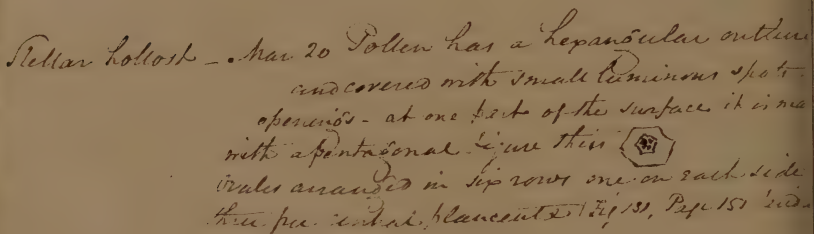 Stellar holost – Mar 20 Pollen has a hexangular outline
and covered with small luminous spots
openings – at one part of the surface it is ma
with a pentagonal figure thus
ovules arranged in six rows one on each side
three placentæ Fig 131, Page 151